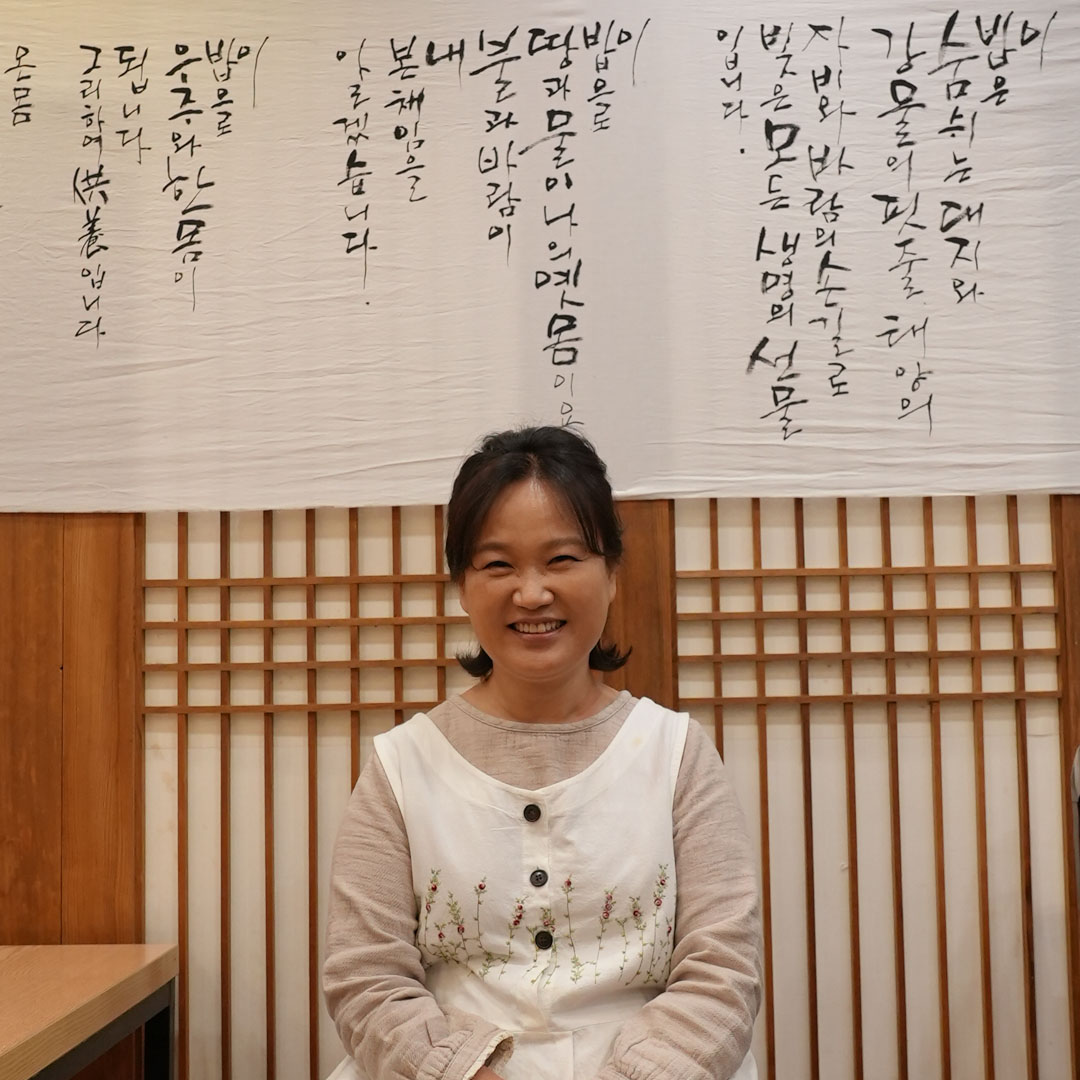 이
밥은
숨쉬는 대지와
강물의 핏줄 태양의
자비와 바람의 손길로
빚은 모든 생명의 선물
입니다.
이
밥으로
땅과 물이 나의 옛 몸이요
불과 바람이
내
본체임을
알겠습니다.
이
밥으로
우주와 한몸이
됩니다
그리하여 供養입니다
온몸